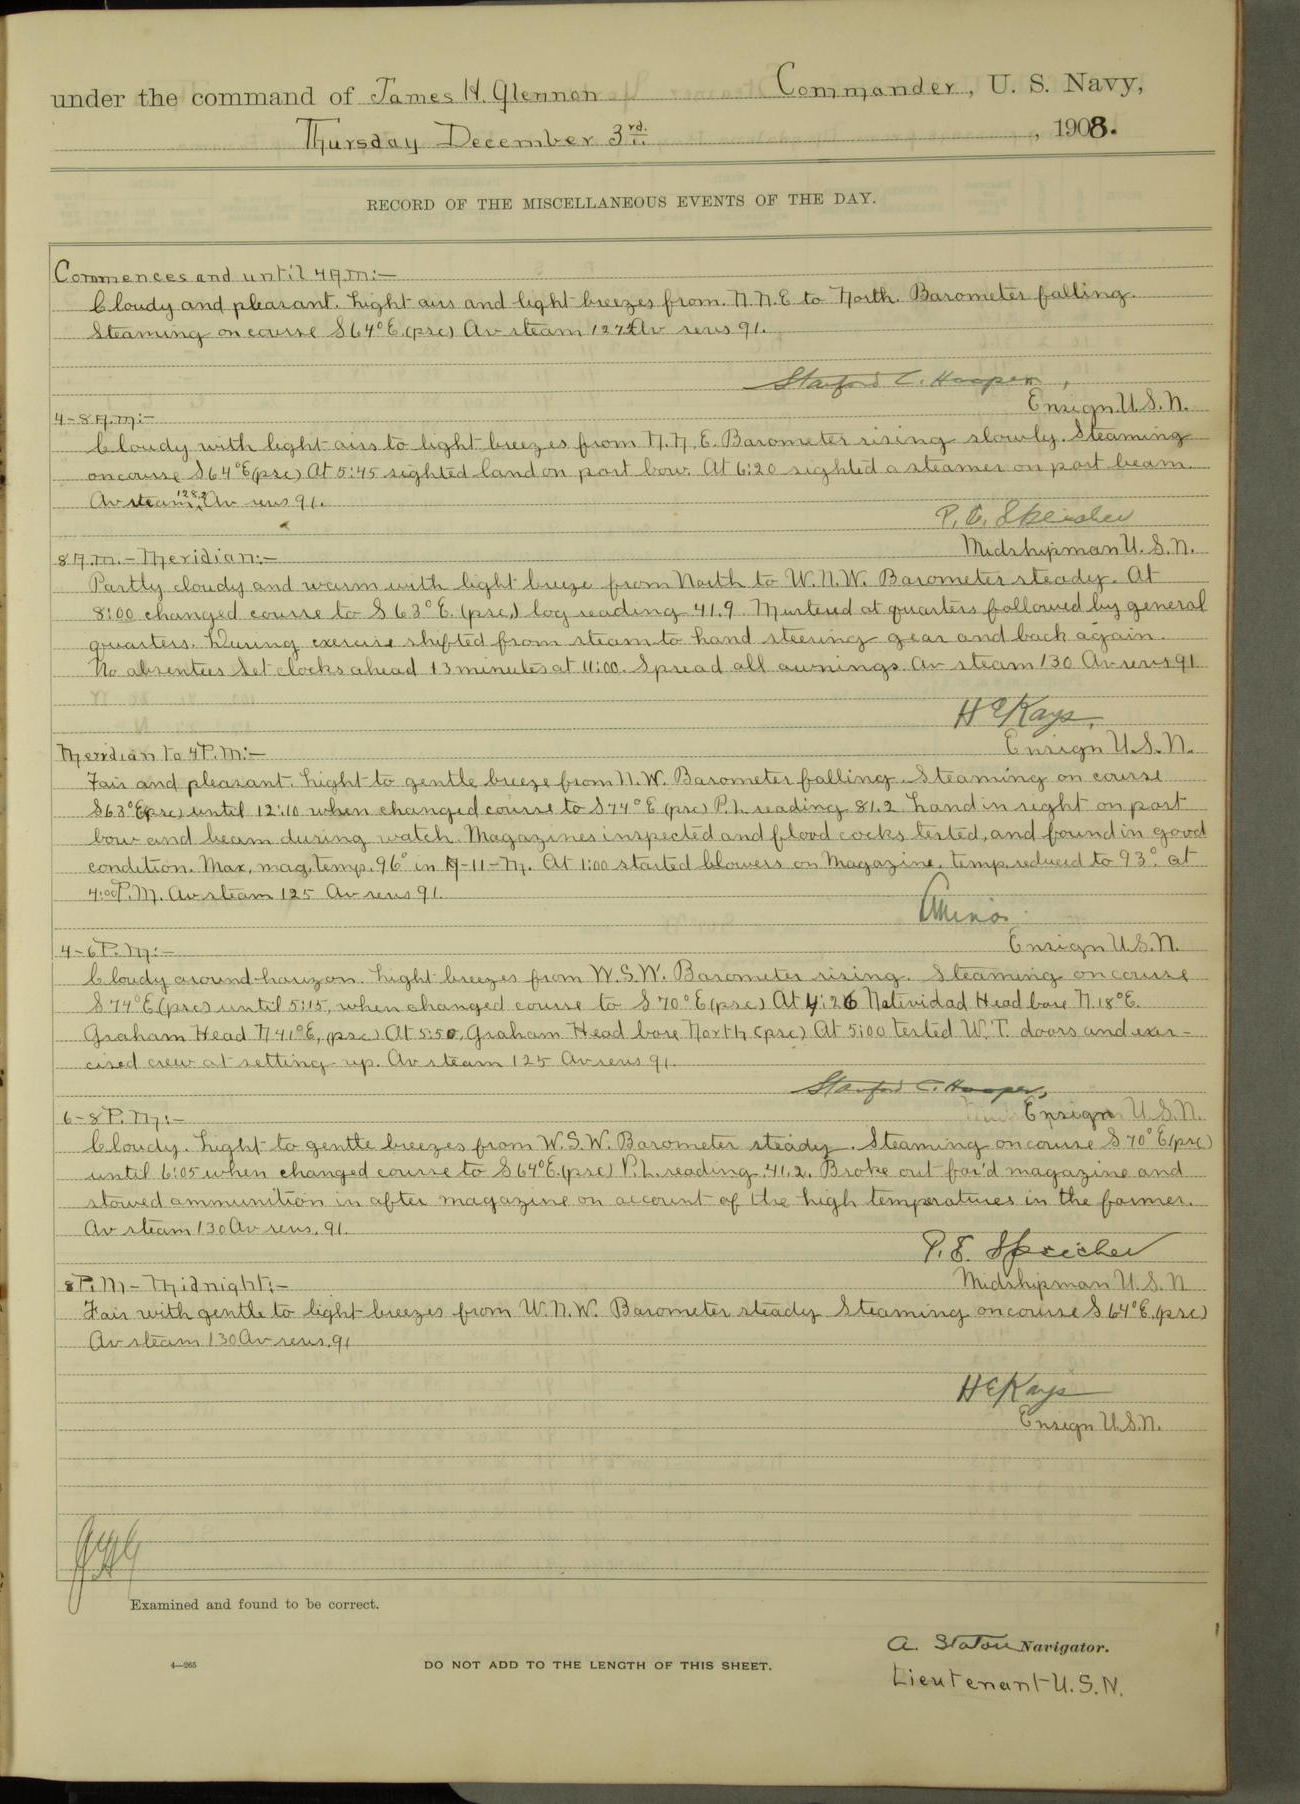 under the command of James H. Glennon Commander, U. S. Navy,
Thursday December 3rd. , 1908.
RECORD OF THE MISCELLANEOUS EVENTS OF THE DAY.
Commences and until 4 A.M:—
Cloudy and pleasant. Light airs and light breezes from. N.N.E to North. Barometer falling.
Steaming on course S 64° E. (psc) Av steam 127 Av revs 91.
Stanford C. Hooper,
Ensign U.S.N.
4-8 A.M:—
Cloudy with light airs to light breezes from N.N.E. Barometer rising slowly. Steaming
on course S 64° E (psc) At 5:45 sighted land on port bow. At 6:20 sighted a steamer on port beam.
Av steam 128, Av revs 91.
P. E. Speicher
Midshipman U.S.N.
8 A.M.- Meridian:—
Partly cloudy and warm with light breeze from North to W.N.W. Barometer steady. At
8:00 changed course to S 63° E. (psc,) log reading 41.9. Mustered at quarters followed by general
quarters. During exercise shifted from steam to hand steering gear and back again.
No absentees Set clocks ahead 13 minutes at 11:00. Spread all awnings. Av steam 130 Av revs 91
H E Kays,
Ensign U.S.N.
Meridian to 4 P.M:—
Fair and pleasant. Light to gentle breeze from N.W. Barometer falling. Steaming on course
S 63° E (psc) until 12:10 when changed course to S 74° E (psc) P.L. reading 81.2 Land in sight on port
bow and beam during watch. Magazines inspected and flood cocks tested, and found in good
condition. Max. mag. temp. 96° in A-11-M. At 1:00 started blowers on Magazine. temp. reduced to 93°. at
4:00 P.M. Av steam 125 Av revs 91.
Ensign U.S.N.
4-6 P.M:—
Cloudy around horizon. Light breezes from W.S.W. Barometer rising. Steaming on course
S 74° E (psc) until 5:15, when changed course to S 70° E (psc) At 4:26 Natividad Head bore N. 18° E.
Graham Head N 41° E, (psc) At 5:50, Graham Head bore North (psc) At 5:00 tested W.T. doors and exer-
cised crew at setting-up. Av steam 125 Av revs 91.
Stanford C. Hooper,
Ensign U.S.N.
6-8 P.M:—
Cloudy. Light to gentle breezes from W.S.W. Barometer steady. Steaming on course S 70° E (psc)
until 6:05 when changed course to S 64° E. (psc) P.L. reading 41.2. Broke out for'd magazine and
stowed ammunition in after magazine on account of the high temperatures in the former.
Av steam 130 Av revs. 91.
P. E. Speicher
Midshipman U.S.N
8 P.M - Midnight:—
Fair with gentle to light breezes from W.N.W. Barometer steady Steaming on course S 64° E. (psc)
Av steam 130 Av revs. 91
H E Kays
Ensign U.S.N.
JHG
Examined and found to be correct.
A. Staton Navigator.
4—265 DO NOT ADD TO THE LENGTH OF THIS SHEET.
Lieutenant U.S.N.